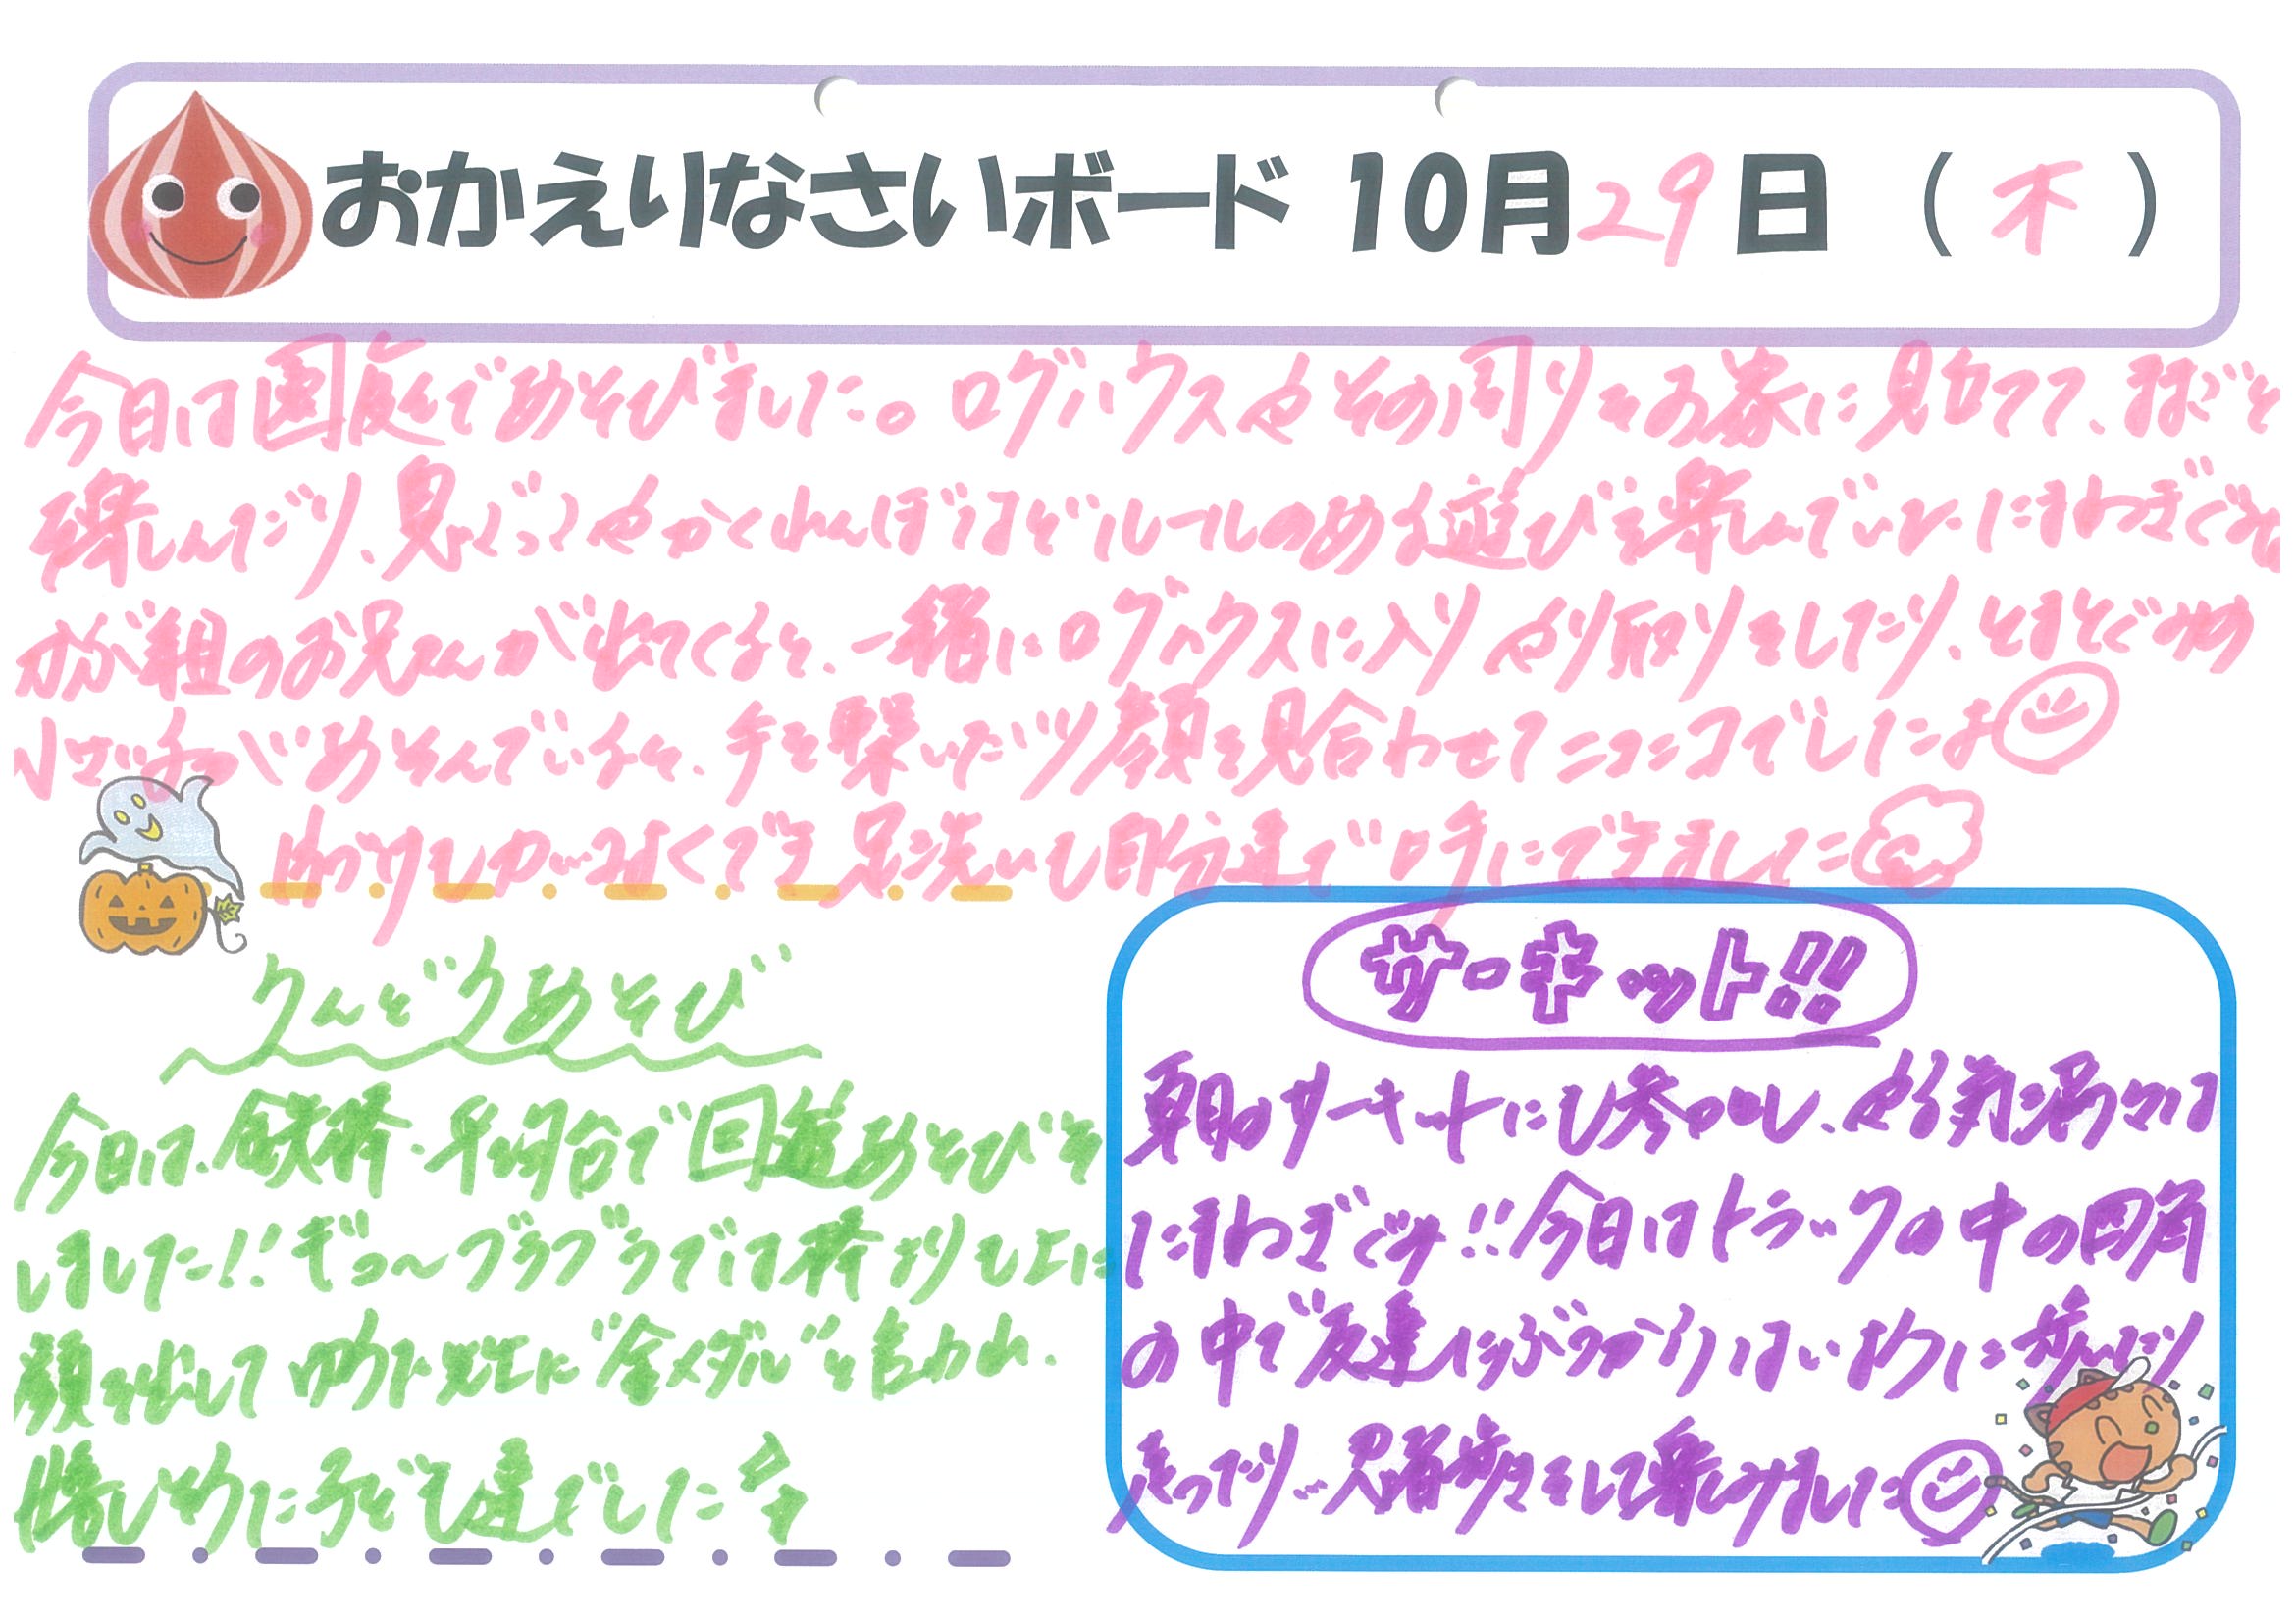 おかえりなさいボード 10月29日 (木)
今日は園庭であそびました。ログハウスやその周りをお家に見立てて、ままごとを
楽しんだり、鬼ごっこやかくれんぼうなどルールのある遊びを楽しんでいた
組のお兄さんが出てくると、一緒にログハウスに入りやり取りをしたり、ときどき
があそんでいると、手を繋いだり顔を見合わせてニコニコでしたよ
足洗いも自分達で上手にできました
うんどうあそび
今日は、鉄棒・平均台で回遊あそびを
しました!! ぎゅ〜ブラブラでは棒よりも上に
顔を出して ゆうた先生に"金メダル"と言われ、
嬉しそうに子ども達でした
サーキット!!
朝のサーキットにも参加し、やる気満々な
にまわぎぐみ!! 今日はトラックの中の四角
の中で友達にぶつからないように歩いたり
走ったり…忍者歩きをして楽しみました